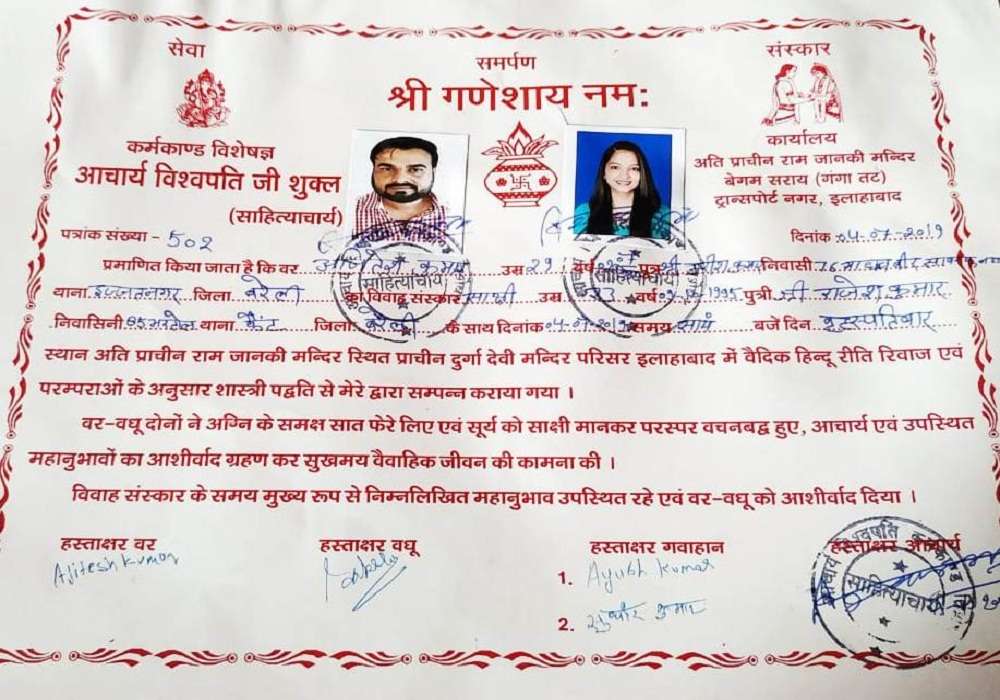 सेवा
समर्पण
संस्कार
श्री गणेशाय नम:
कर्मकाण्ड विशेषज्ञ
आचार्य विश्वपति जी शुक्ल
(साहित्याचार्य)
कार्यालय
अति प्राचीन राम जानकी मन्दिर
बेगम सराय (गंगा तट)
ट्रान्सपोर्ट नगर, इलाहाबाद
पत्रांक संख्या - 502
दिनांक 04-07-2019
प्रमाणित किया जाता है कि वर कुमार उम्र 29 वर्ष पुत्र श्री निवासी
थाना इज्जतनगर जिला बरेली का विवाह संस्कार साक्षी उम्र वर्ष पुत्री श्री राजेश कुमार
निवासिनी थाना कैंट जिला बरेली के साथ दिनांक 04-07-2019 समय सायं बजे दिन बृहस्पतिवार
स्थान अति प्राचीन राम जानकी मन्दिर स्थित प्राचीन दुर्गा देवी मन्दिर परिसर इलाहाबाद में वैदिक हिन्दू रीति रिवाज एवं
परम्पराओं के अनुसार शास्त्री पद्वति से मेरे द्वारा सम्पन्न कराया गया ।
वर-वधू दोनों ने अग्नि के समक्ष सात फेरे लिए एवं सूर्य को साक्षी मानकर परस्पर वचनबद्व हुए, आचार्य एवं उपस्थित
महानुभावों का आशीर्वाद ग्रहण कर सुखमय वैवाहिक जीवन की कामना की ।
विवाह संस्कार के समय मुख्य रूप से निम्नलिखित महानुभाव उपस्थित रहे एवं वर-वधू को आशीर्वाद दिया ।
हस्ताक्षर वर
हस्ताक्षर वधू
हस्ताक्षर गवाहान
हस्ताक्षर आचार्य
Ajitesh Kumar
1. Ayubh Kumar
2. सुधीर कुमार
साहित्याचार्य
साहित्याचार्य
साहित्याचार्य